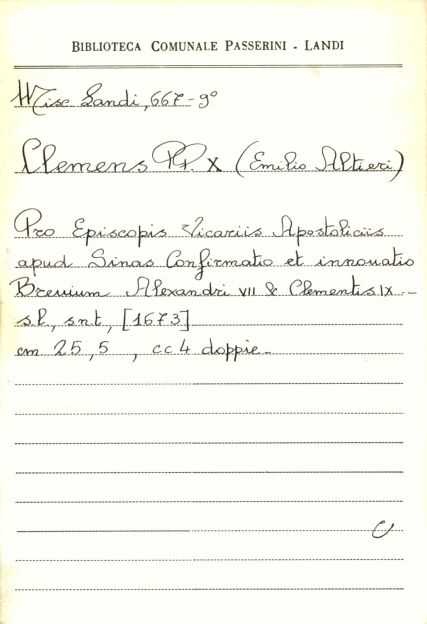 BIBLIOTECA COMUNALE PASSERINI - LANDI
Misc Landi, 667-9°
Clemens PP. X (Emilio Altieri)
Pro Episcopis Vicariis Apostoliciis
apud Sinas Confirmatio et innouatio
Breuium Alexandri VII & Clementis IX --
s.l., s.n.t., [1673]
cm 25,5 , cc 4 doppie -
C